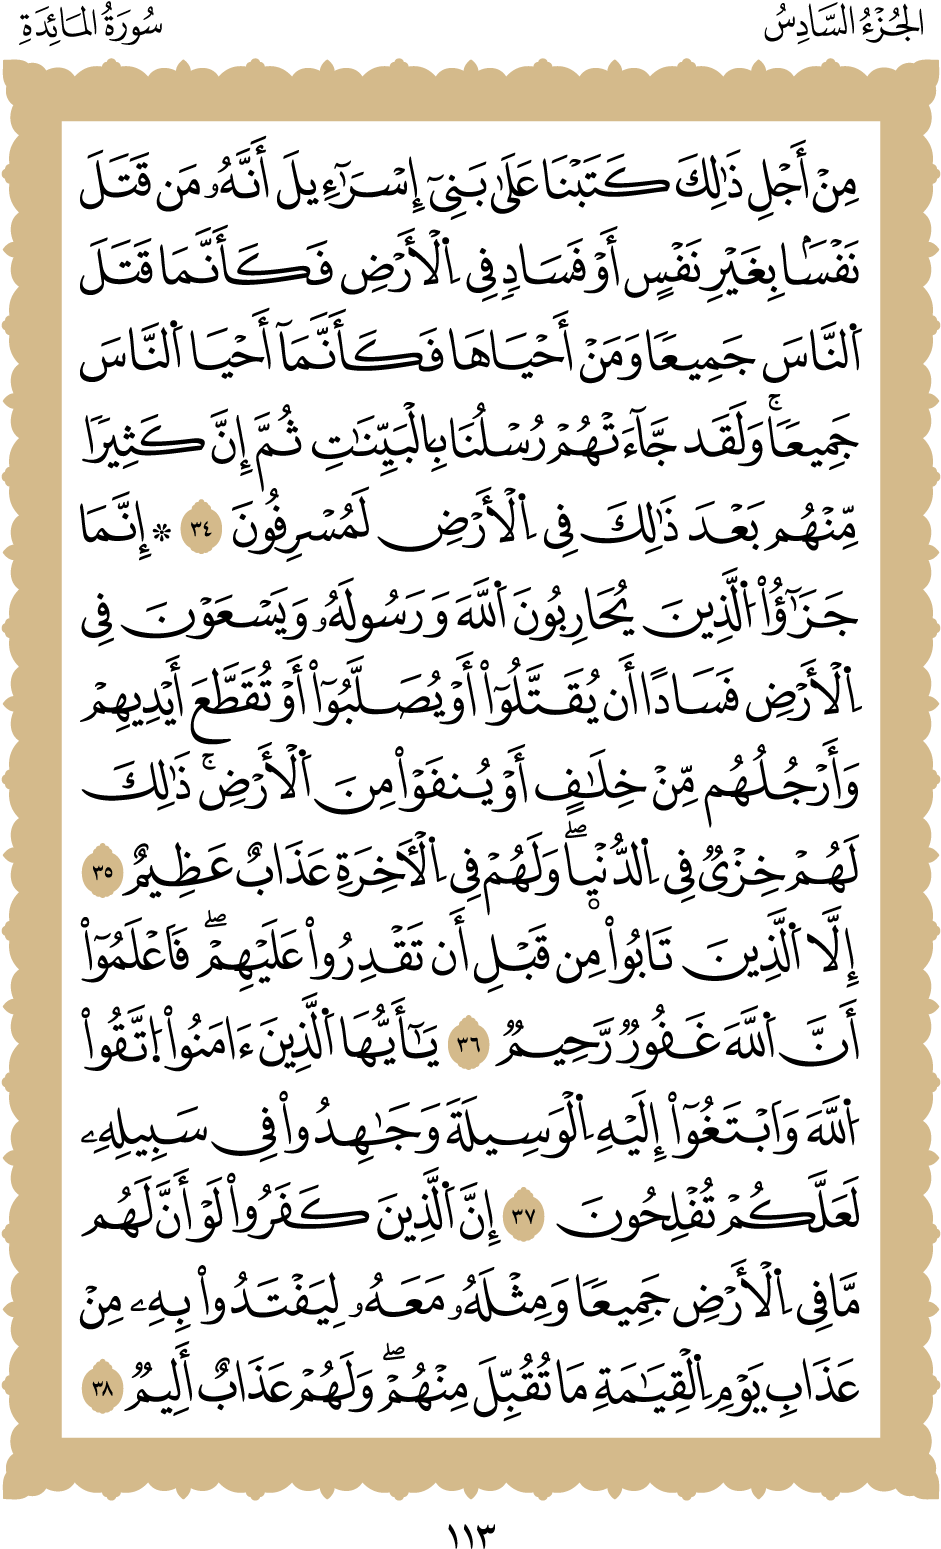 الجُزْءُ السَّادِسُ
سُورَةُ المَائِدَةِ
مِنْ أَجْلِ ذَٰلِكَ كَتَبْنَا عَلَىٰ بَنِىٓ إِسْرَٰٓءِيلَ أَنَّهُۥ مَن قَتَلَ
نَفْسَۢا بِغَيْرِ نَفْسٍ أَوْ فَسَادٖ فِي اِ۬لْأَرْضِ فَكَأَنَّمَا قَتَلَ
اَ۬لنَّاسَ جَمِيعٗا وَمَنْ أَحْيَاهَا فَكَأَنَّمَآ أَحْيَا اَ۬لنَّاسَ
جَمِيعٗاۚ وَلَقَد جَّآءَتْهُمْ رُسْلُنَا بِالْبَيِّنَٰتِ ثُمَّ إِنَّ كَثِيرٗا
مِّنْهُم بَعْدَ ذَٰلِكَ فِي اِ۬لْأَرْضِ لَمُسْرِفُونَ ٣٤ ۞ إِنَّمَا
جَزَٰٓؤُاْ اُ۬لَّذِينَ يُحَارِبُونَ اَ۬للَّهَ وَرَسُولَهُۥ وَيَسْعَوْنَ فِي
اِ۬لْأَرْضِ فَسَادًا أَن يُقَتَّلُوٓاْ أَوْ يُصَلَّبُوٓاْ أَوْ تُقَطَّعَ أَيْدِيهِمْ
وَأَرْجُلُهُم مِّنْ خِلَٰفٍ أَوْ يُنفَوْاْ مِنَ اَ۬لْأَرْضِۚ ذَٰلِكَ
لَهُمْ خِزْيٞ فِي اِ۬لدُّنْي۪اۖ وَلَهُمْ فِي اِ۬لْأٓخِرَةِ عَذَابٌ عَظِيمٌ ٣٥
إِلَّا اَ۬لَّذِينَ تَابُواْ مِن قَبْلِ أَن تَقْدِرُواْ عَلَيْهِمْۖ فَاَعْلَمُوٓاْ
أَنَّ اَ۬للَّهَ غَفُورٞ رَّحِيمٞ ٣٦ يَٰٓأَيُّهَا اَ۬لَّذِينَ ءَامَنُواْ اُ۪تَّقُواْ
اَ۬للَّهَ وَاَبْتَغُوٓاْ إِلَيْهِ اِ۬لْوَسِيلَةَ وَجَٰهِدُواْ فِي سَبِيلِهِۦ
لَعَلَّكُمْ تُفْلِحُونَ ٣٧ إِنَّ اَ۬لَّذِينَ كَفَرُواْ لَوْ أَنَّ لَهُم
مَّا فِي اِ۬لْأَرْضِ جَمِيعٗا وَمِثْلَهُۥ مَعَهُۥ لِيَفْتَدُواْ بِهِۦ مِنْ
عَذَابِ يَوْمِ اِ۬لْقِيَٰمَةِ مَا تُقُبِّلَ مِنْهُمْۖ وَلَهُمْ عَذَابٌ أَلِيمٞ ٣٨
١١٣